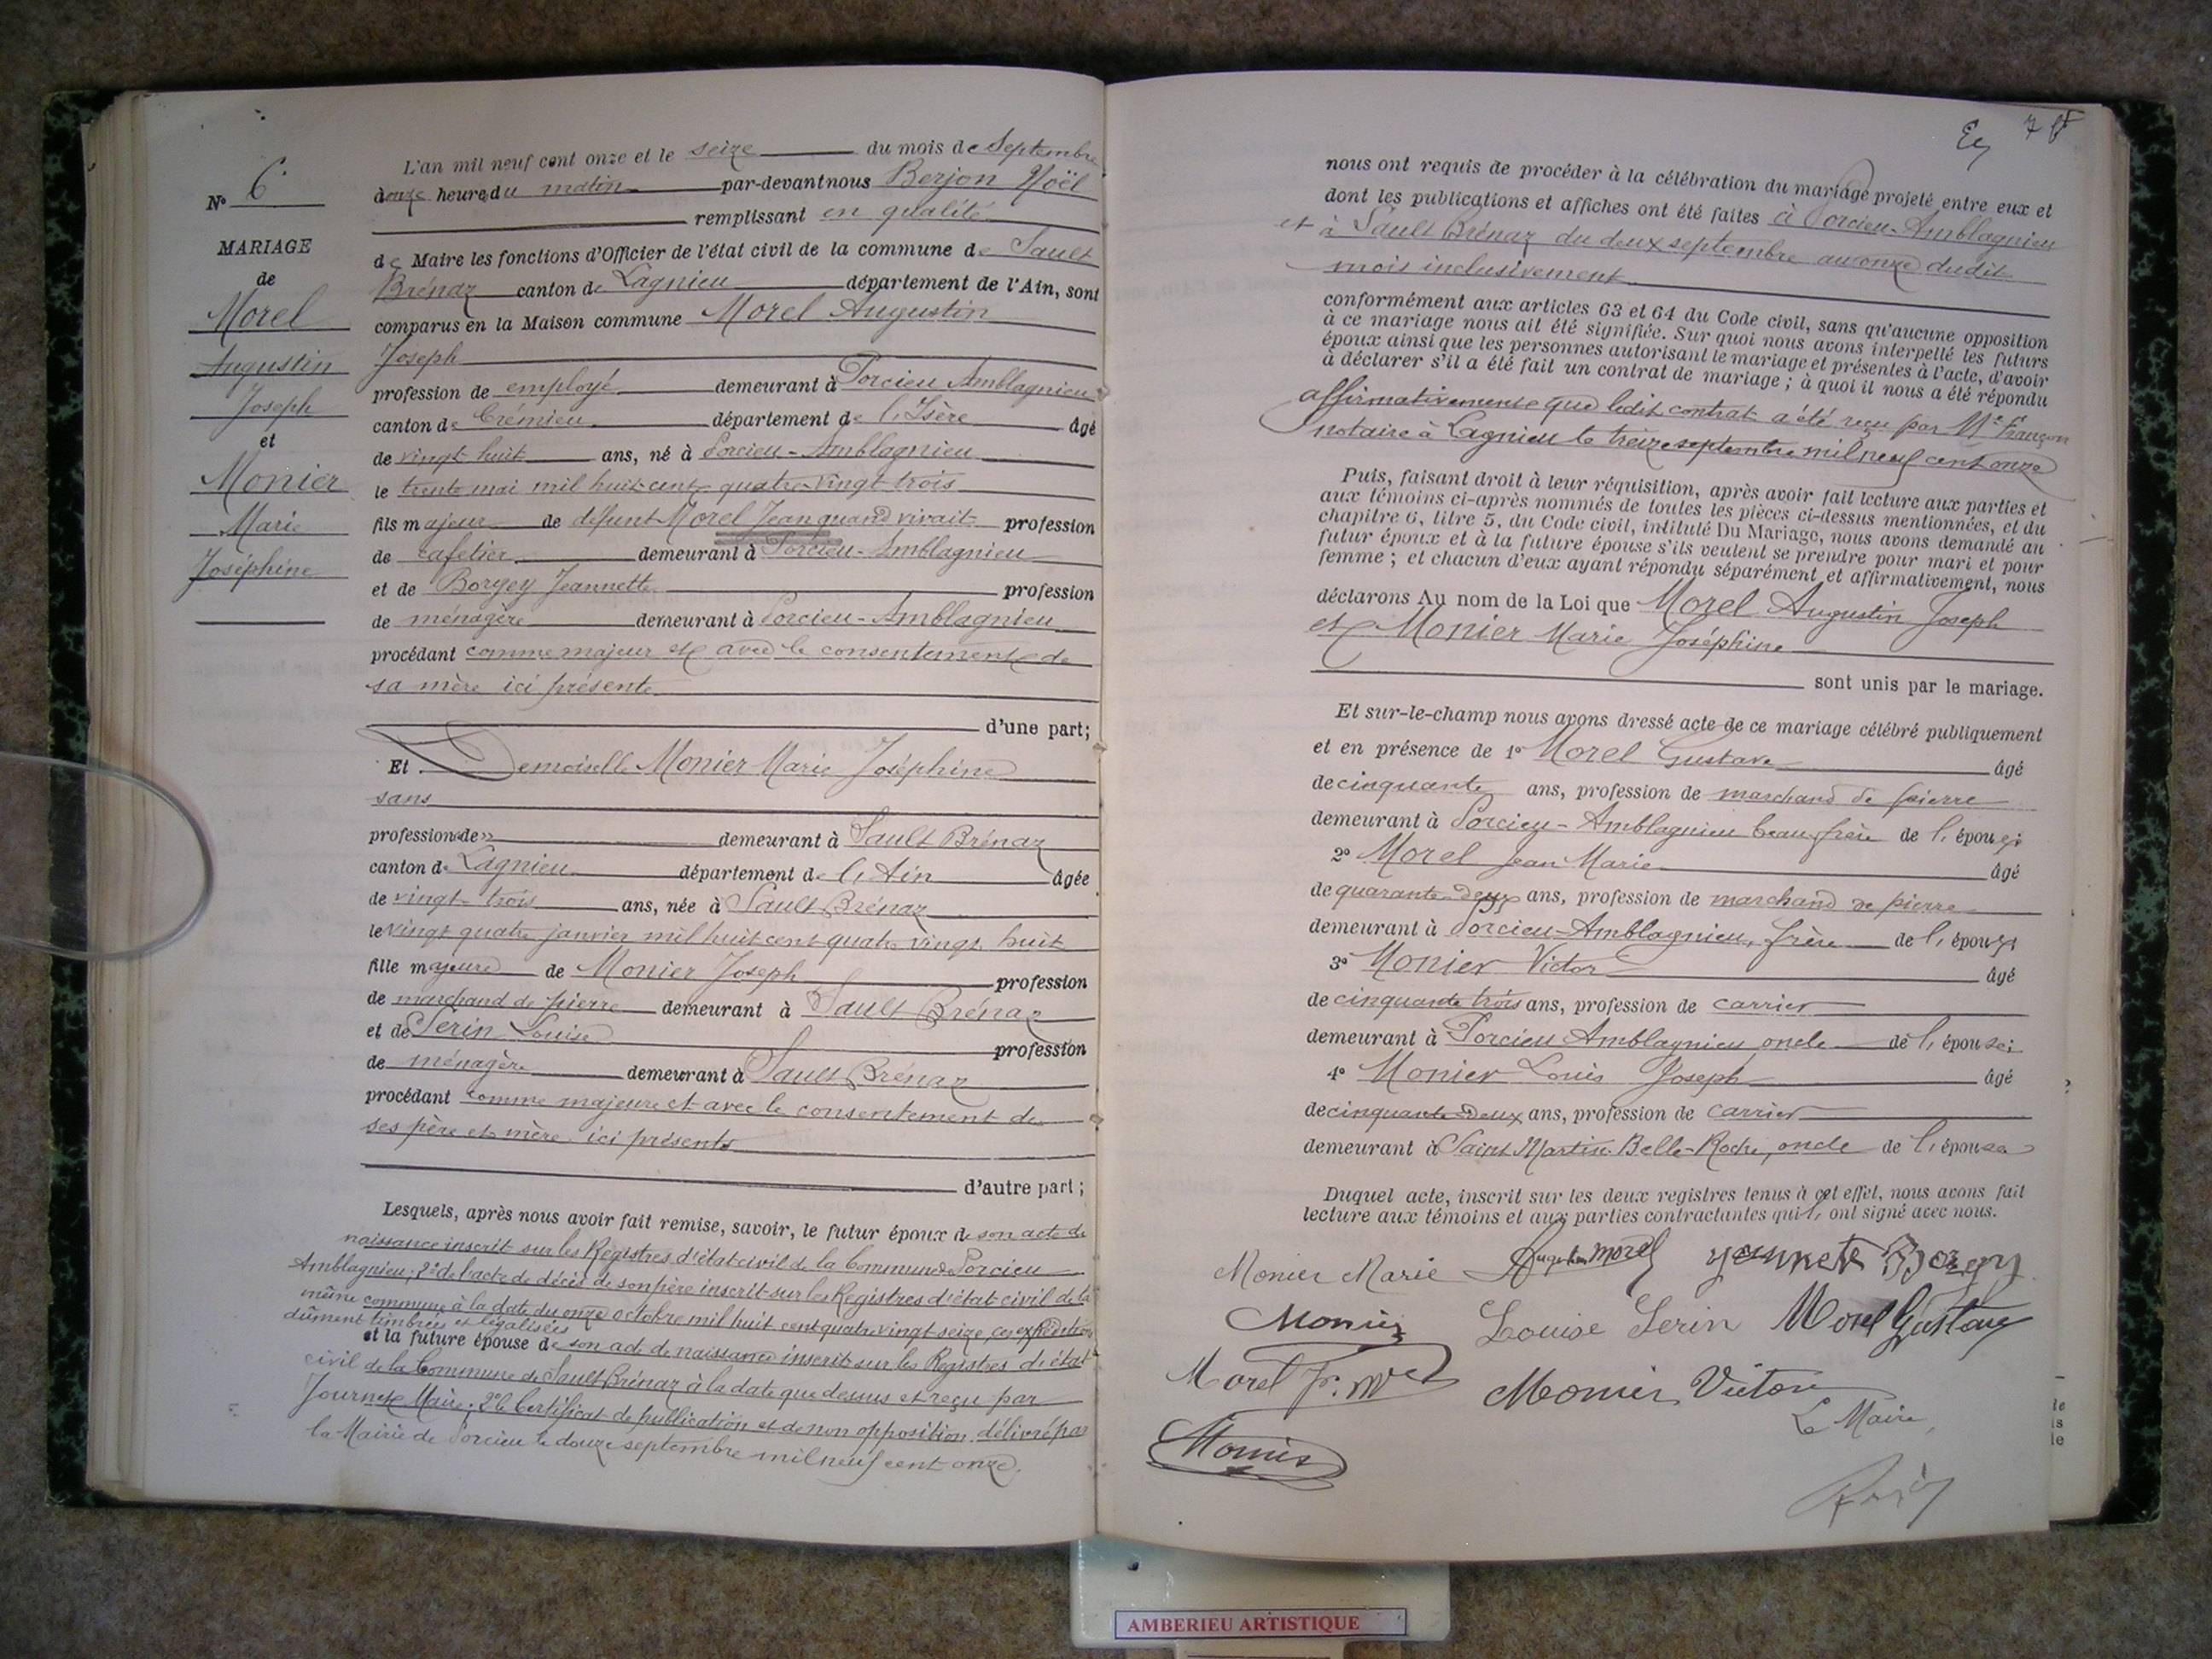 N° 6
MARIAGE
de
Morel
Augustin
Joseph
et
Monier
Marie
Joséphine
L'an mil neuf cent onze et le seize du mois de Septembre
à onze heure du matin par-devant nous Berjon Noël
remplissant en qualité
de Maire les fonctions d'Officier de l'état civil de la commune de Sault
Brénaz canton de Lagnieu département de l'Ain, sont
comparus en la Maison commune Morel Augustin
Joseph
profession de employé demeurant à Porcieu Amblagnieu
canton de Crémieu département de l'Isère âgé
de vingt huit ans, né à Porcieu-Amblagnieu
le trente mai mil huit cent quatre-vingt trois
fils majeur de défunt Morel Jean quand vivait profession
de cafetier demeurant à Porcieu-Amblagnieu
et de Borgey Jeannette profession
de ménagère demeurant à Porcieu-Amblagnieu
procédant comme majeur et avec le consentement de
sa mère ici présente
d'une part;
Et Demoiselle Monier Marie Joséphine
sans
profession de » demeurant à Sault Brénaz
canton de Lagnieu département de l'Ain âgée
de vingt-trois ans, née à Sault Brénaz
le vingt quatre janvier mil huit cent quatre vingt huit
fille majeure de Monier Joseph profession
de marchand de pierre demeurant à Sault Brénaz
et de Serin Louise profession
de ménagère demeurant à Sault Brénaz
procédant comme majeure et avec le consentement de
ses père et mère ici présents
d'autre part;
Lesquels, après nous avoir fait remise, savoir, le futur époux de son acte de
naissance inscrit sur les Registres d'état civil de la Commune de Porcieu
Amblagnieu; 2° de l'acte de décès de son père inscrit sur les Registres d'état civil de la
même commune à la date du onze octobre mil huit cent quatre vingt seize, ces expéditions
dûment timbrées et légalisées
et la future épouse de son acte de naissance inscrit sur les Registres d'état
civil de la Commune de Sault Brénaz à la date que dessus et reçu par
Journet Maire; 2° le Certificat de publication et de non opposition délivré par
la Mairie de Porcieu le douze septembre mil neuf cent onze.
nous ont requis de procéder à la célébration du mariage projeté entre eux et
dont les publications et affiches ont été faites à Porcieu-Amblagnieu
et à Sault Brénaz du deux septembre au onze dudit
mois inclusivement
conformément aux articles 63 et 64 du Code civil, sans qu'aucune opposition
à ce mariage nous ait été signifiée. Sur quoi nous avons interpellé les futurs
époux ainsi que les personnes autorisant le mariage et présentes à l'acte, d'avoir
à déclarer s'il a été fait un contrat de mariage; à quoi il nous a été répondu
affirmativement que ledit contrat a été reçu par Me Françon
notaire à Lagnieu le treize septembre mil neuf cent onze
Puis, faisant droit à leur réquisition, après avoir fait lecture aux parties et
aux témoins ci-après nommés de toutes les pièces ci-dessus mentionnées, et du
chapitre 6, titre 5, du Code civil, intitulé Du Mariage, nous avons demandé au
futur époux et à la future épouse s'ils veulent se prendre pour mari et pour
femme; et chacun d'eux ayant répondu séparément et affirmativement, nous
déclarons Au nom de la Loi que Morel Augustin Joseph
et Monier Marie Joséphine
sont unis par le mariage.
Et sur-le-champ nous avons dressé acte de ce mariage célébré publiquement
et en présence de 1° Morel Gustave âgé
de cinquante ans, profession de marchand de pierre
demeurant à Porcieu-Amblagnieu beau frère de l'époux;
2° Morel Jean Marie âgé
de quarante-deux ans, profession de marchand de pierre
demeurant à Porcieu-Amblagnieu, frère de l'époux;
3° Monier Victor âgé
de cinquante trois ans, profession de carrier
demeurant à Porcieu Amblagnieu oncle de l'épouse;
4° Monier Louis Joseph âgé
de cinquante-deux ans, profession de carrier
demeurant à Saint Martin-Belle-Roche, oncle de l'épouse
Duquel acte, inscrit sur les deux registres tenus à cet effet, nous avons fait
lecture aux témoins et aux parties contractantes qui ont signé avec nous.
Monier Marie Augustin Morel Jeannete Borgey
Monier Louise Serin Morel Gustave
Morel Monier Victor
Le Maire,
Monier
AMBERIEU ARTISTIQUE